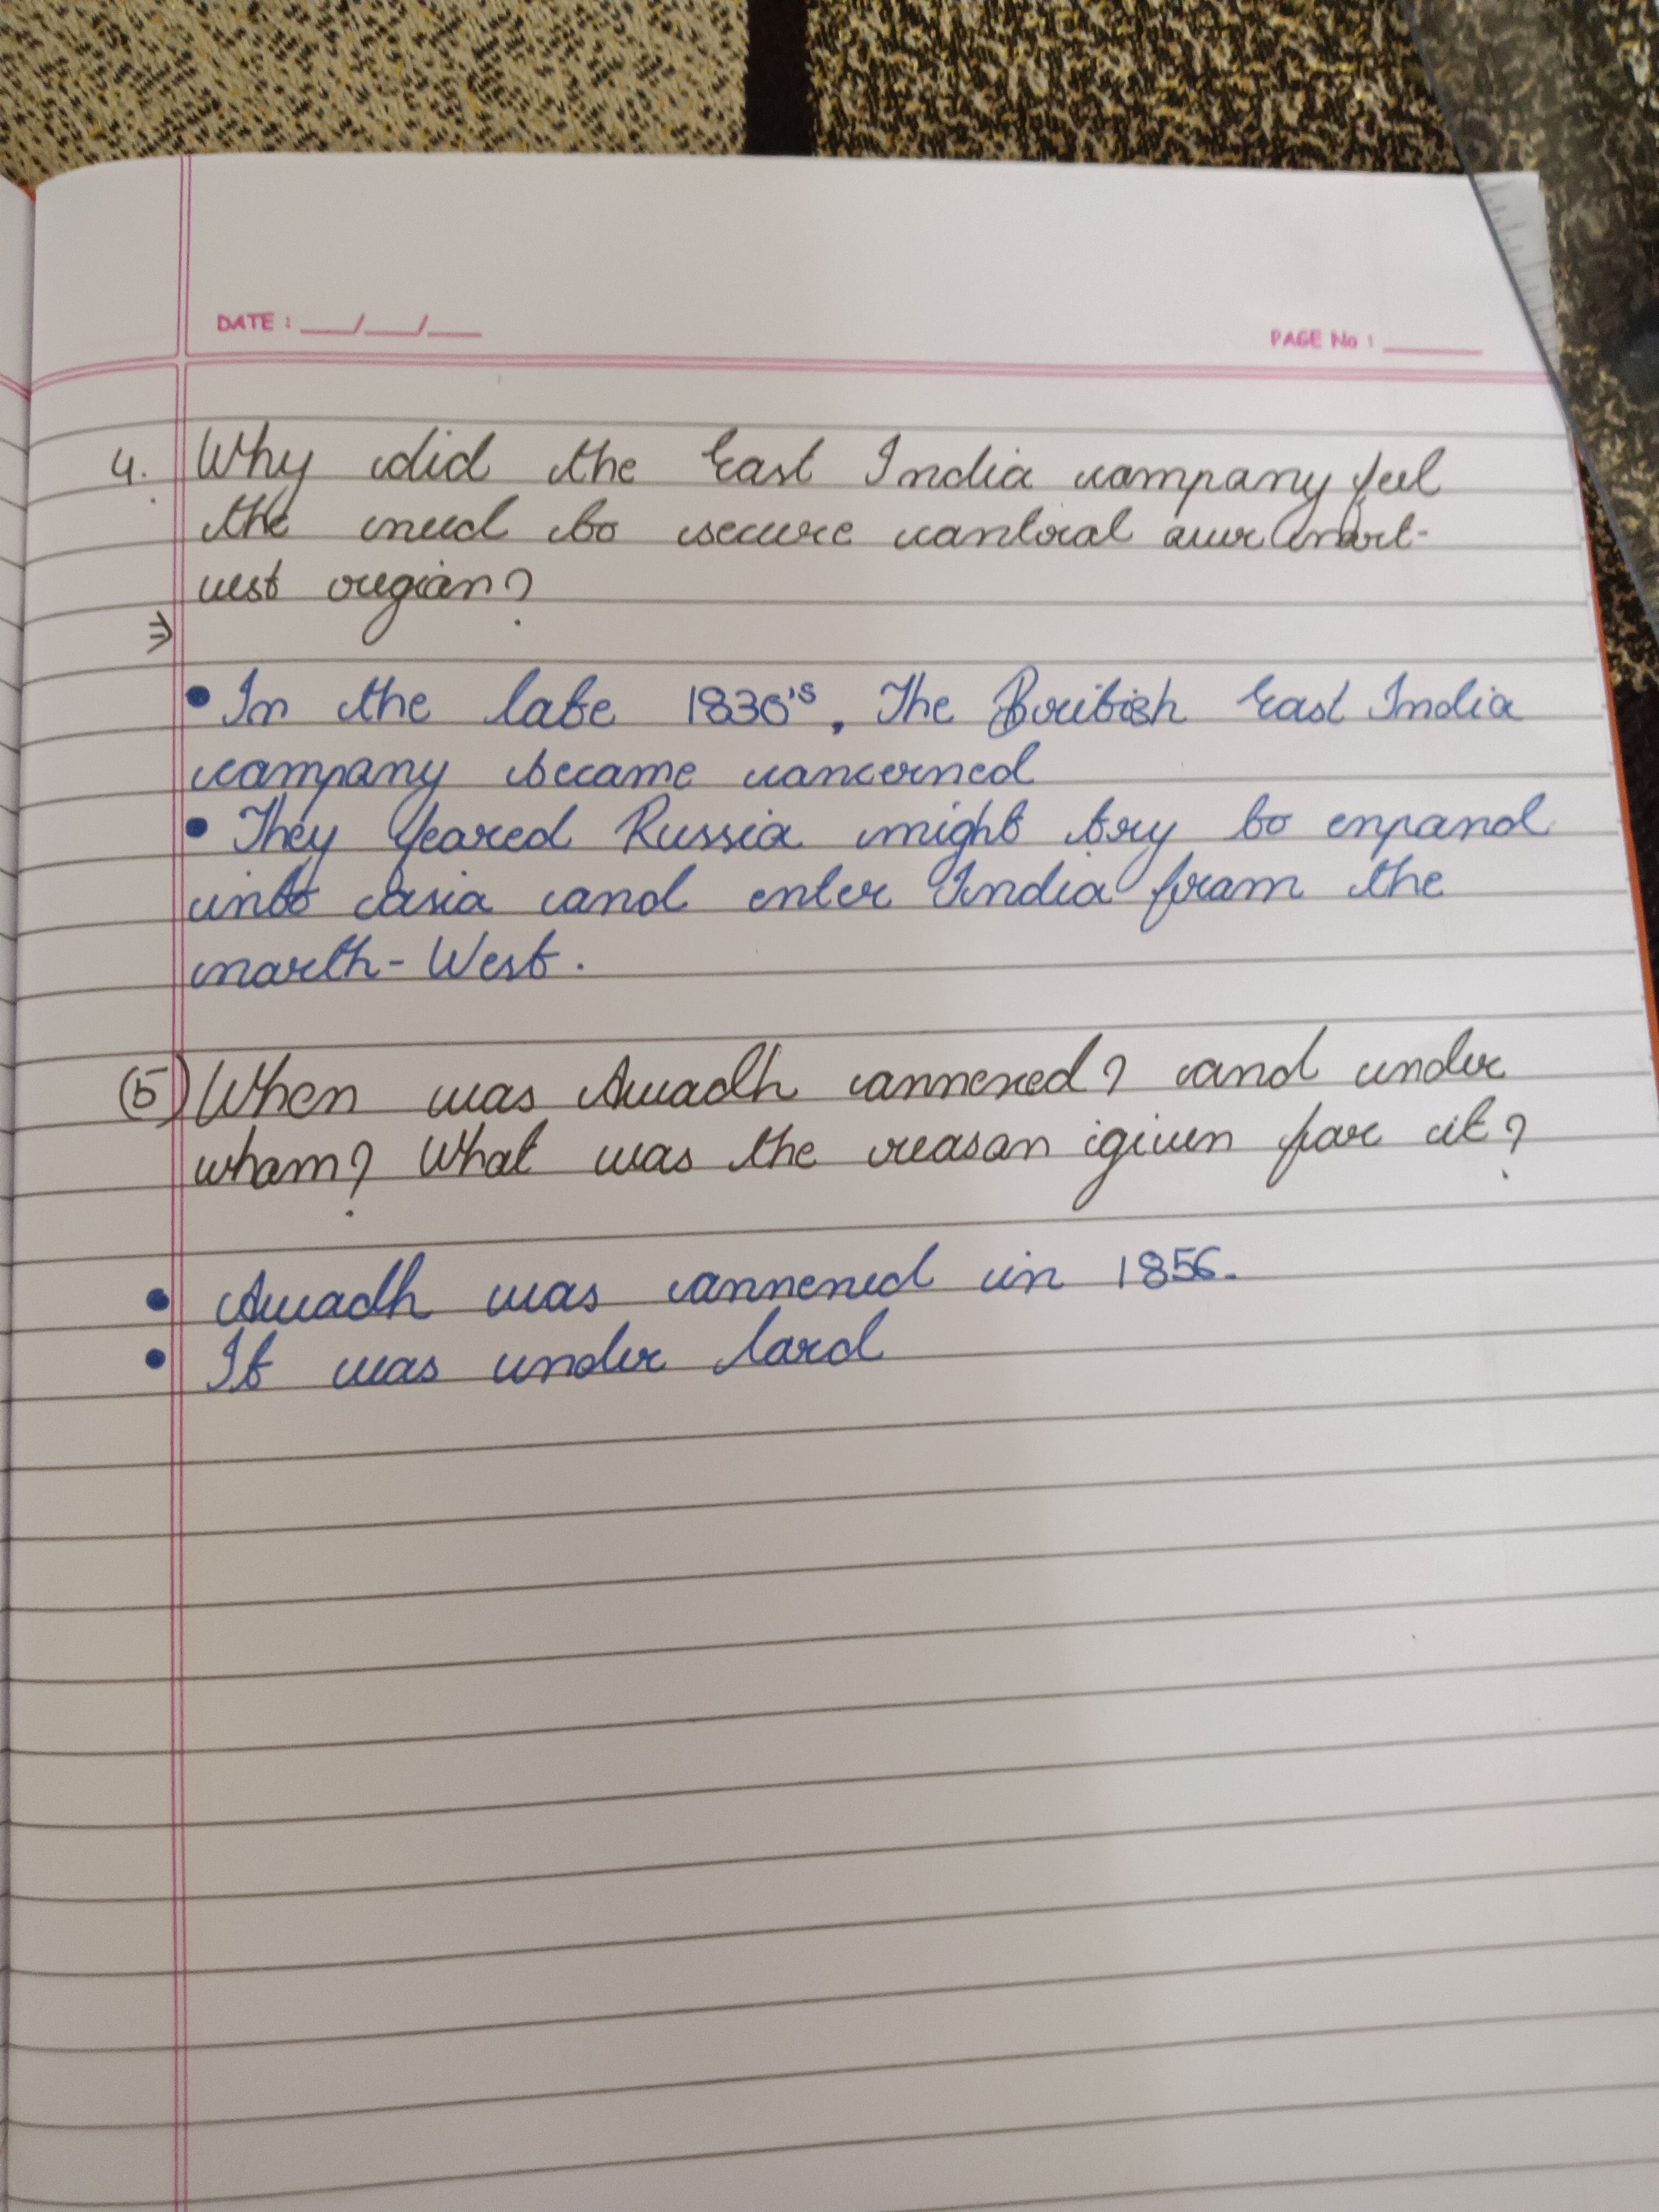 DATE : __/__/__
PAGE No : ____
4. Why did the East India company feel
the need to secure control over nort-
west region?
⇒
• In the late 1830's, The British East India
company became concerned
• They feared Russia might try to expand
into asia and enter India from the
north-West.
(5) When was Awadh annexed? and under
whom? What was the reason given for it?
• Awadh was annexed in 1856.
• It was under lord